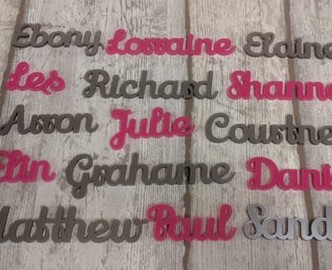 Ebony Lorraine Elaine
Les Richard Shann
Arron Julie Courtne
Elin Grahame Dani
Matthew Paul Sand